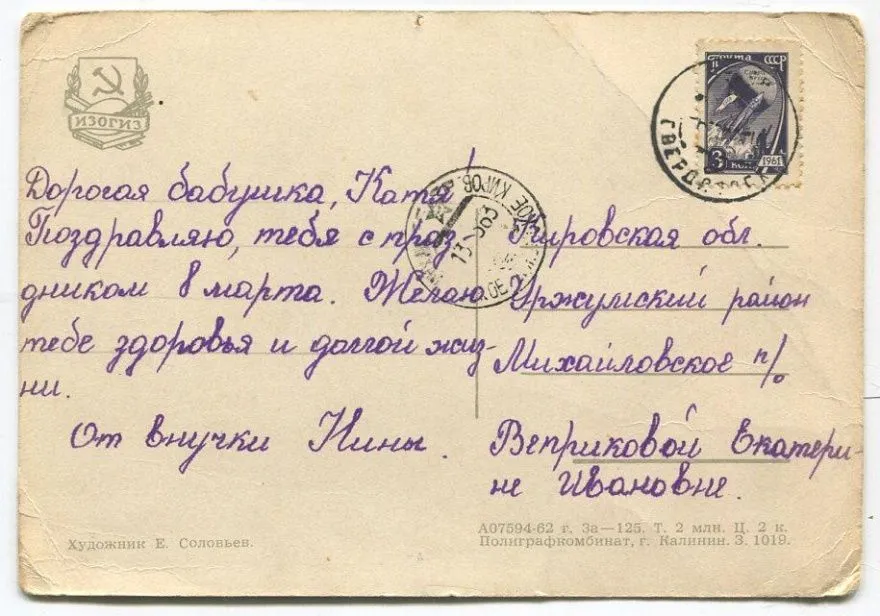 ИЗОГИЗ
Почта СССР
3 коп. 1961
СВЕРДЛОВСК
КИРОВ.
13 963
Дорогая бабушка, Катя!
Поздравляю, тебя с праз-
дником 8 марта. Желаю
тебе здоровья и долгой жиз-
ни.
От внучки Нины.
Кировская обл.
Уржумский район
Михайловское п/о
Веприковой Екатери-
не Ивановне.
Художник Е. Соловьев.
А07594-62 г. За—125. Т. 2 млн. Ц. 2 к.
Полиграфкомбинат, г. Калинин. З. 1019.